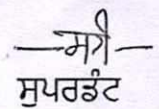 —ਸਹੀ—
ਸੁਪਰਡੰਟ